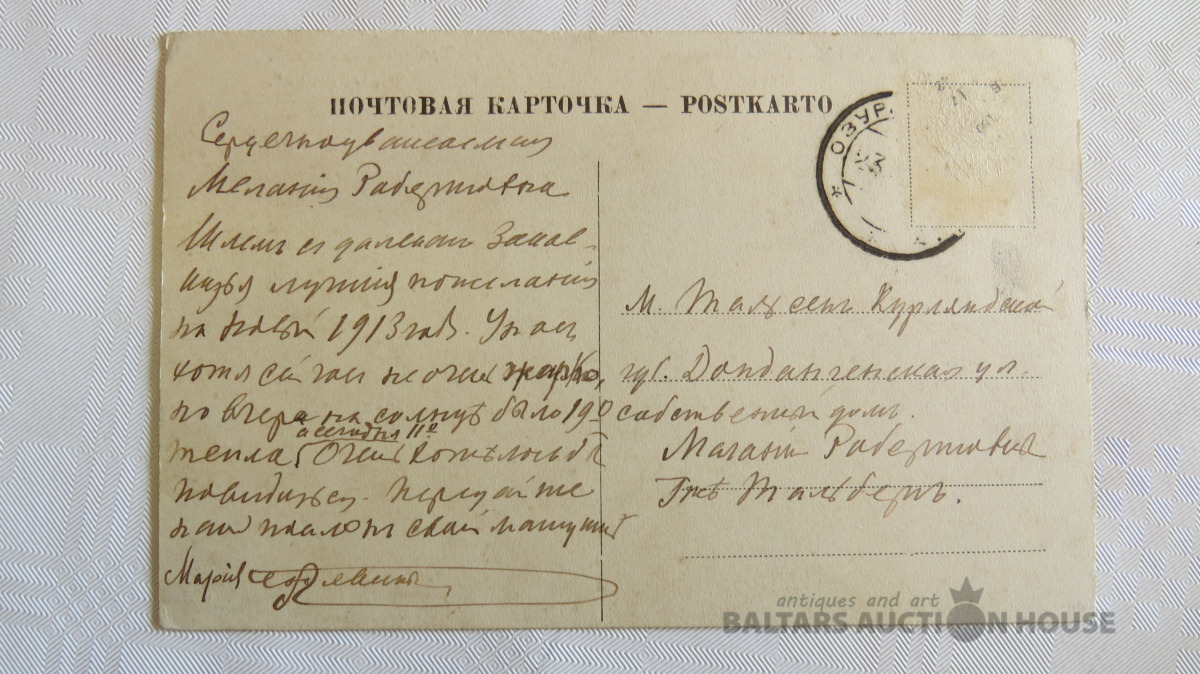 ПОЧТОВАЯ КАРТОЧКА — POSTKARTO
ОЗУР.
Сердечноуважаемая
Меланія Робертовна
Шлемъ съ далекаго Закав-
казья лучшія пожеланія
на Новый 1913 годъ. У насъ
хотя сейчасъ не очень жарко,
но вчера на солнцѣ было 19º
а сегодня 11º
тепла. Очень хотѣлось бы
повидаться. Передайте
наш поклонъ своей мамушкѣ
Марія
М. Тальсенъ Курляндской
губ. Донdangенская ул.
собственный домъ.
Робертовнѣ
Гжѣ Тальбергъ.
antiques and art
BALTARS AUCTION HOUSE